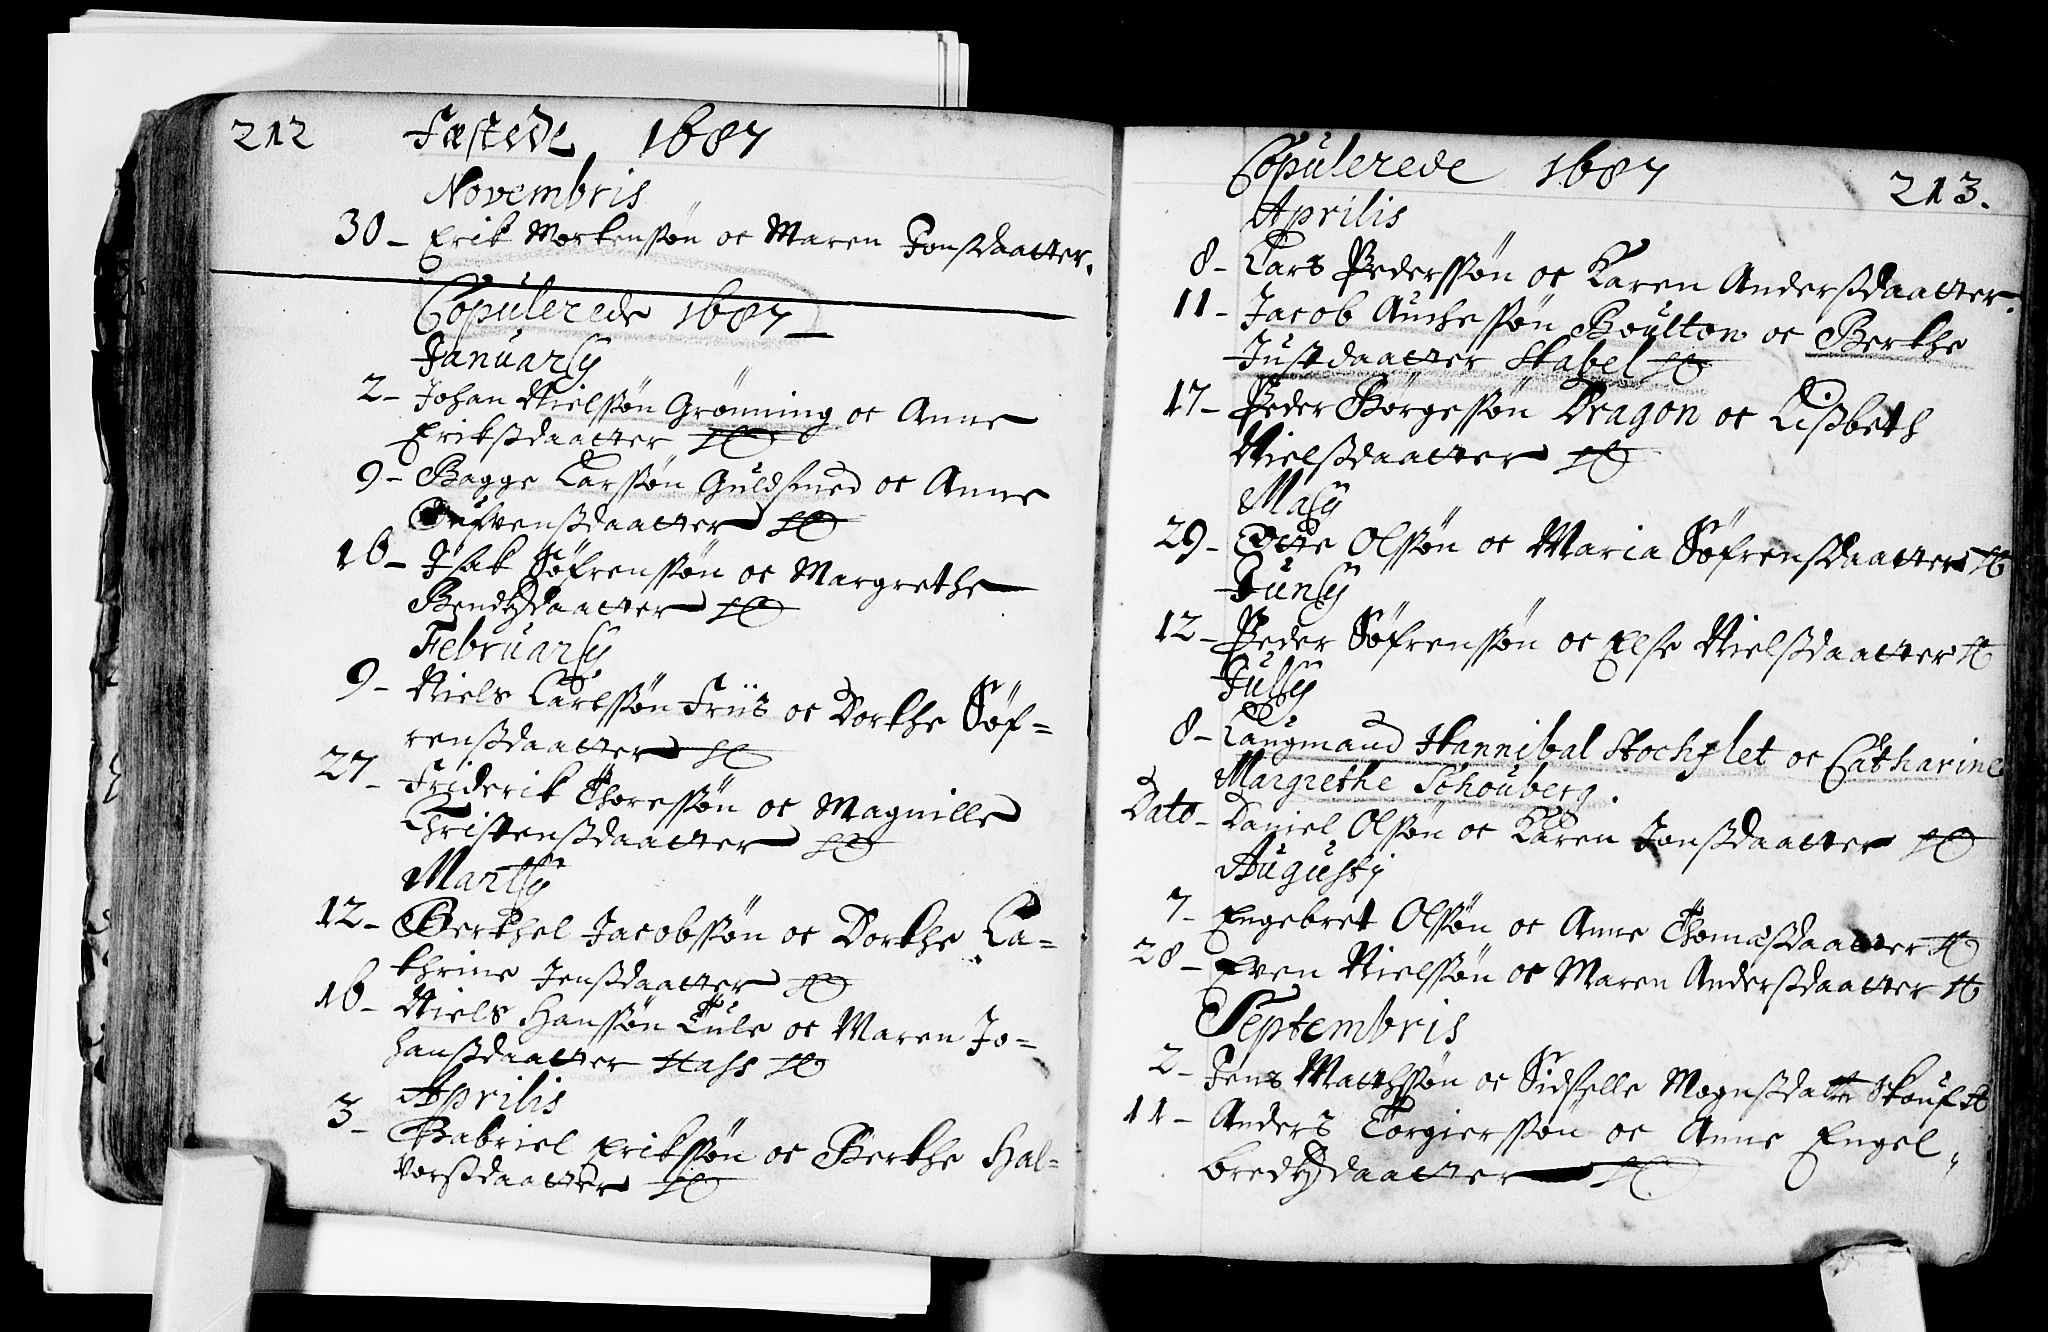 212 Fæstede 1687
Novembris
30 - Erik Mortenssøn oc Maren Jonsdaatter.
Copulerede 1687
Januarij
2 - Johan Nielssøn Grønning oc Anne
Eriksdaatter
9 - Bagge Larssøn Guldsmed oc Anne
16 - Isak Søfrenssøn oc Margrethe
Bendtzdaatter
Februarij
9 - Niels Carlssøn Friis oc Dorthe Søf=
rensdaatter
27 - Friderik Thoressøn oc Magnille
Christensdaatter
Martij
12 - Berthel Jacobssøn oc Dorthe Ca=
thrine Jensdaatter
16 - Niels Hanssøn Tule oc Maren Jo=
hansdaatter Hass
Aprilis
3 - Gabriel Erikssøn oc Berthe Hal=
vorsdaatter
Copulerede 1687 213.
Aprilis
8 - Lars Pederssøn oc Karen Andersdaatter.
11 - Jacob Boulton oc Berthe
Justdaatter Stabel
17 - Peder Børgessøn Dragon oc Lisbeth
Nielsdaatter
Maij
29 - Otte Olssøn oc Maria Søfrensdaatter
Junij
12 - Peder Søfrenssøn oc Else Nielsdaatter
Julij
8 - Laugmand Hannibal Stochflet oc Catharine
Margrethe Schouberg.
Dato - Daniel Olssøn oc Karen Jonsdaatter
Augustij
7 - Engebret Olssøn oc Anne Thomasdaatter
28 - Even Nielssøn oc Maren Andersdaatter
Septembris
2 - Jens Matthssøn oc Sidselle Mognsdatter Skouf
11 - Anders Torgierssøn oc Anne Engel
bredtzdaatter